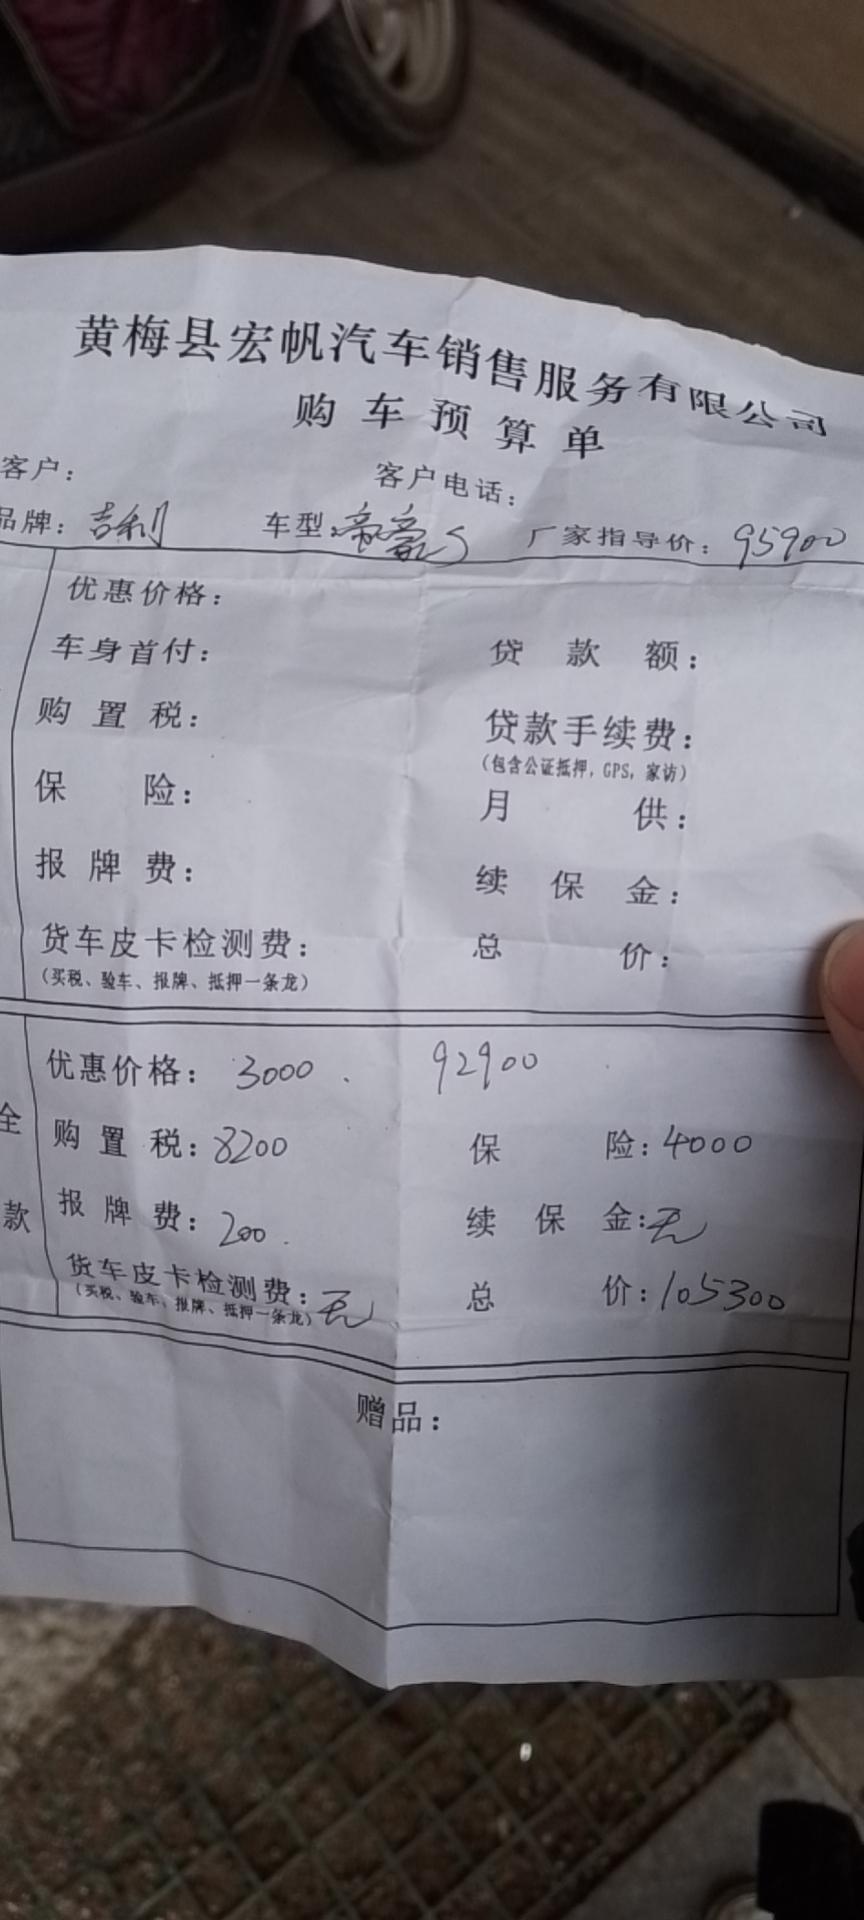 黄梅县宏帆汽车销售服务有限公司
购车预算单
客户： 客户电话：
品牌：吉利 车型：帝豪S 厂家指导价：95900
优惠价格：
车身首付： 贷款额：
购置税： 贷款手续费：
（包含公证抵押，GPS，家访）
保险： 月供：
报牌费： 续保金：
货车皮卡检测费： 总价：
（买税、验车、报牌、抵押一条龙）
全款
优惠价格：3000. 92900
购置税：8200 保险：4000
报牌费：200. 续保金：无
货车皮卡检测费：无 总价：105300
（买税、验车、报牌、抵押一条龙）
赠品：